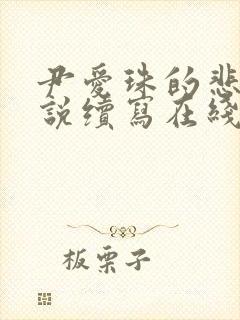 尹愛珠的悲
說續寫在綫
板栗子